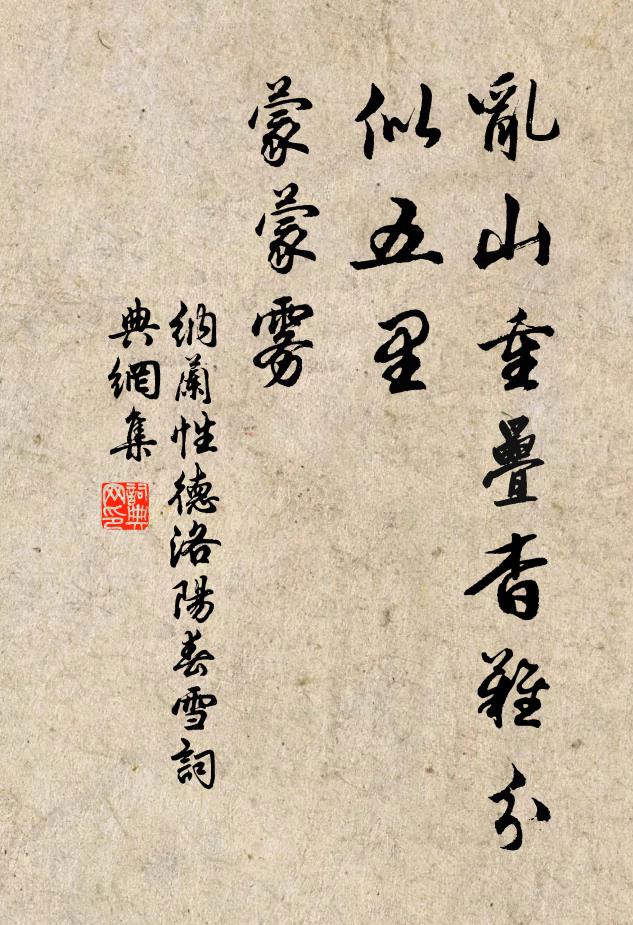 亂山重疊杳難分
似五里
蒙蒙霧
納蘭性德洛陽春雪詞
典網集
詞典網印